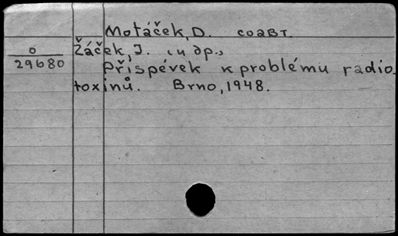 Motáček, D. соавт.
Žáček, J. и др.,
o
29680
Příspévek k problému radio-
toxinů. Brno, 1948.